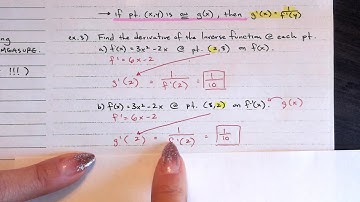 → if pt. (x,y) is on g(x), then g'(x) = 1/f'(y)
ing
MEASURE.
!!! )
ex.3) Find the derivative of the inverse function @ each pt.
a) f(x) = 3x² - 2x @ pt. (2,8) on f(x).
f' = 6x - 2
g'( 2 ) = 1/f'(2) = 1/10
b) f(x) = 3x² - 2x @ pt. (8,2) on f⁻¹(x). g(x)
f' = 6x - 2
g'( 2 ) = 1/f'(2) = 1/10